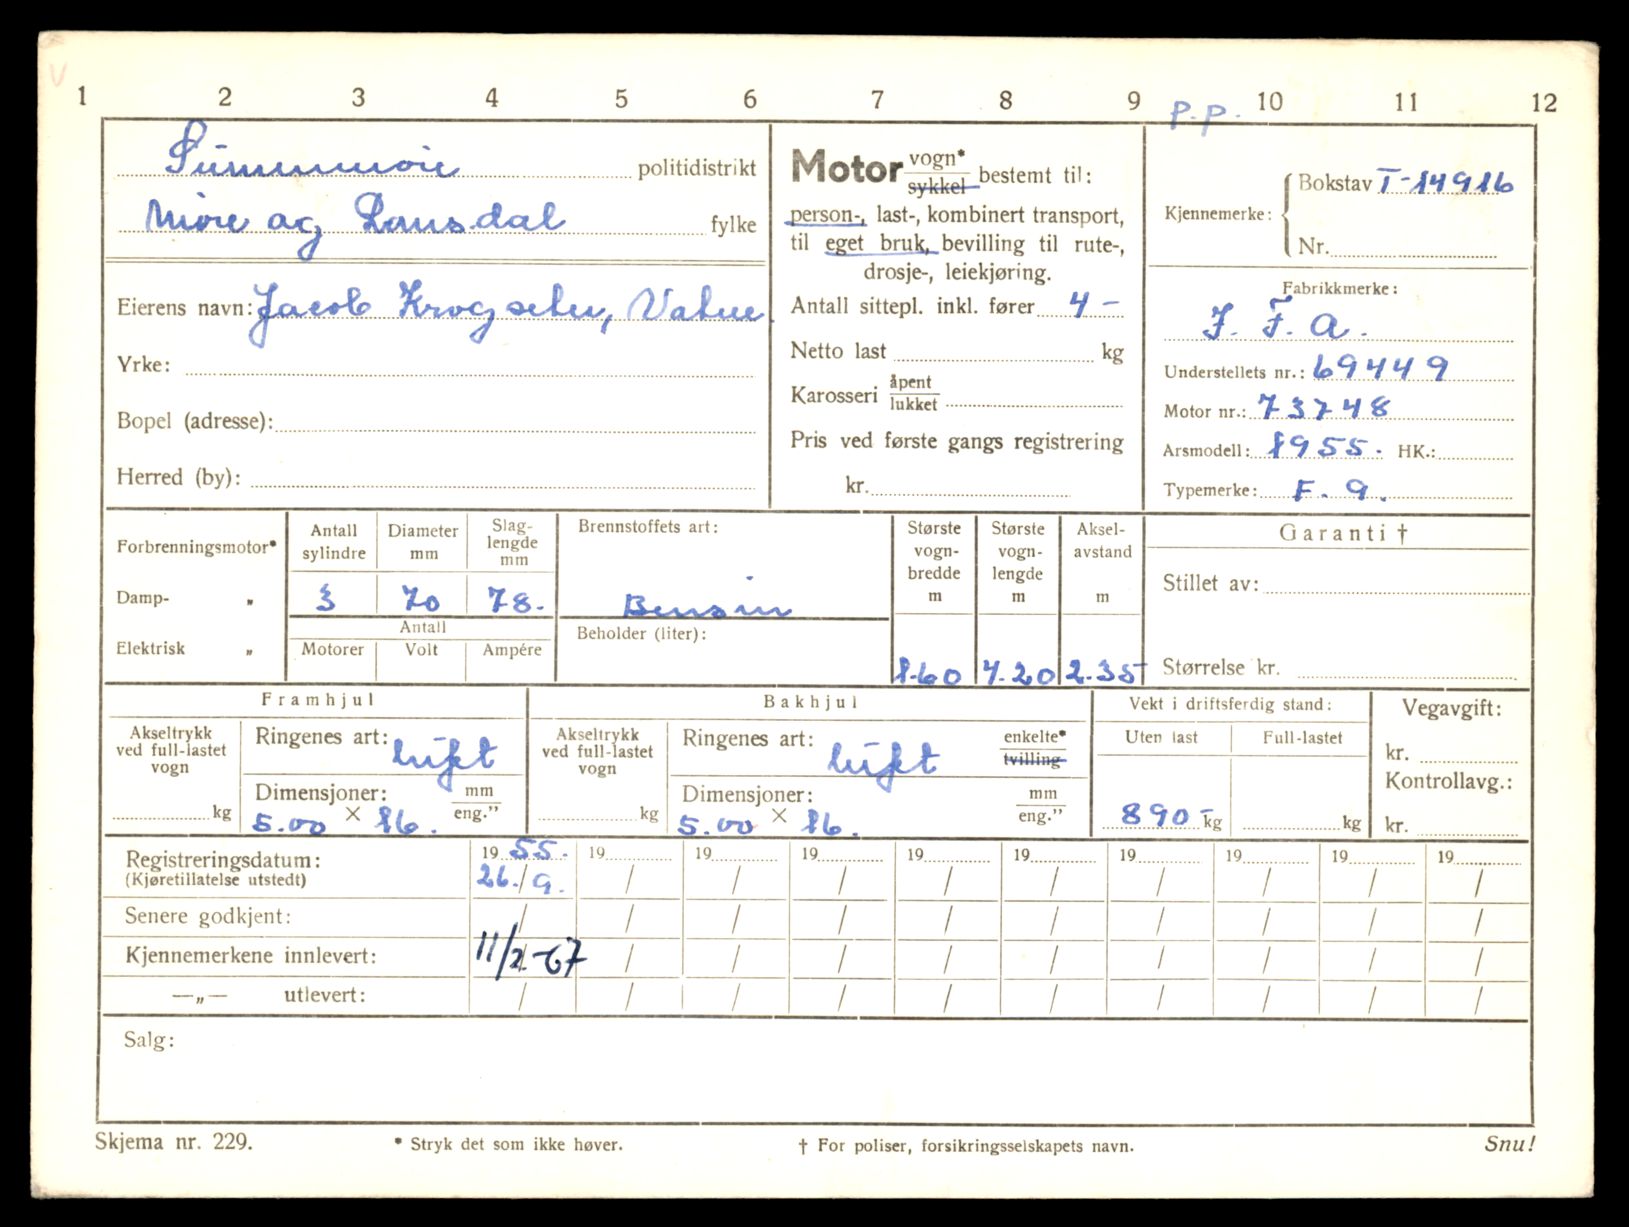 1 2 3 4 5 6 7 8 9 10 11 12
P.P.
Sunnmøre politidistrikt
Møre og Romsdal fylke
Eierens navn: Jacob Krogseter, Vatne
Yrke:
Bopel (adresse):
Herred (by):
Motor vogn* sykkel bestemt til:
person-, last-, kombinert transport,
til eget bruk, bevilling til rute-,
drosje-, leiekjøring.
Antall sittepl. inkl. fører 4 -
Netto last kg
Karosseri åpent lukket
Pris ved første gangs registrering
kr.
Kjennemerke: Bokstav T-14916
Nr.
Fabrikkmerke:
I. F. A.
Understellets nr.: 69449
Motor nr.: 73748
Arsmodell: 1955. HK.:
Typemerke: F. 9.
Forbrenningsmotor*
Damp- „
Elektrisk „
Antall sylindre
3
Diameter mm
70
Slag-lengde mm
78.
Antall
Motorer Volt Ampére
Brennstoffets art:
Bensin
Beholder (liter):
Største vogn-bredde m
1.60
Største vogn-lengde m
4.20
Aksel-avstand m
2.35
Garanti †
Stillet av:
Størrelse kr.
Framhjul
Akseltrykk ved full-lastet vogn
kg
Ringenes art: luft
Dimensjoner: mm eng.”
5.00 × 16.
Bakhjul
Akseltrykk ved full-lastet vogn
kg
Ringenes art: luft enkelte* tvilling
Dimensjoner: mm eng.”
5.00 × 16.
Vekt i driftsferdig stand:
Uten last Full-lastet
890 - kg kg
Vegavgift:
kr.
Kontrollavg.:
kr.
Registreringsdatum: 19 55. 19 19 19 19 19 19 19 19 19
(Kjøretillatelse utstedt) 26./9. / / / / / / / / /
Senere godkjent: / / / / / / / / / /
Kjennemerkene innlevert: 11/2-67 / / / / / / / / /
—„— utlevert: / / / / / / / / / /
Salg:
Skjema nr. 229. * Stryk det som ikke høver. † For poliser, forsikringsselskapets navn. Snu!